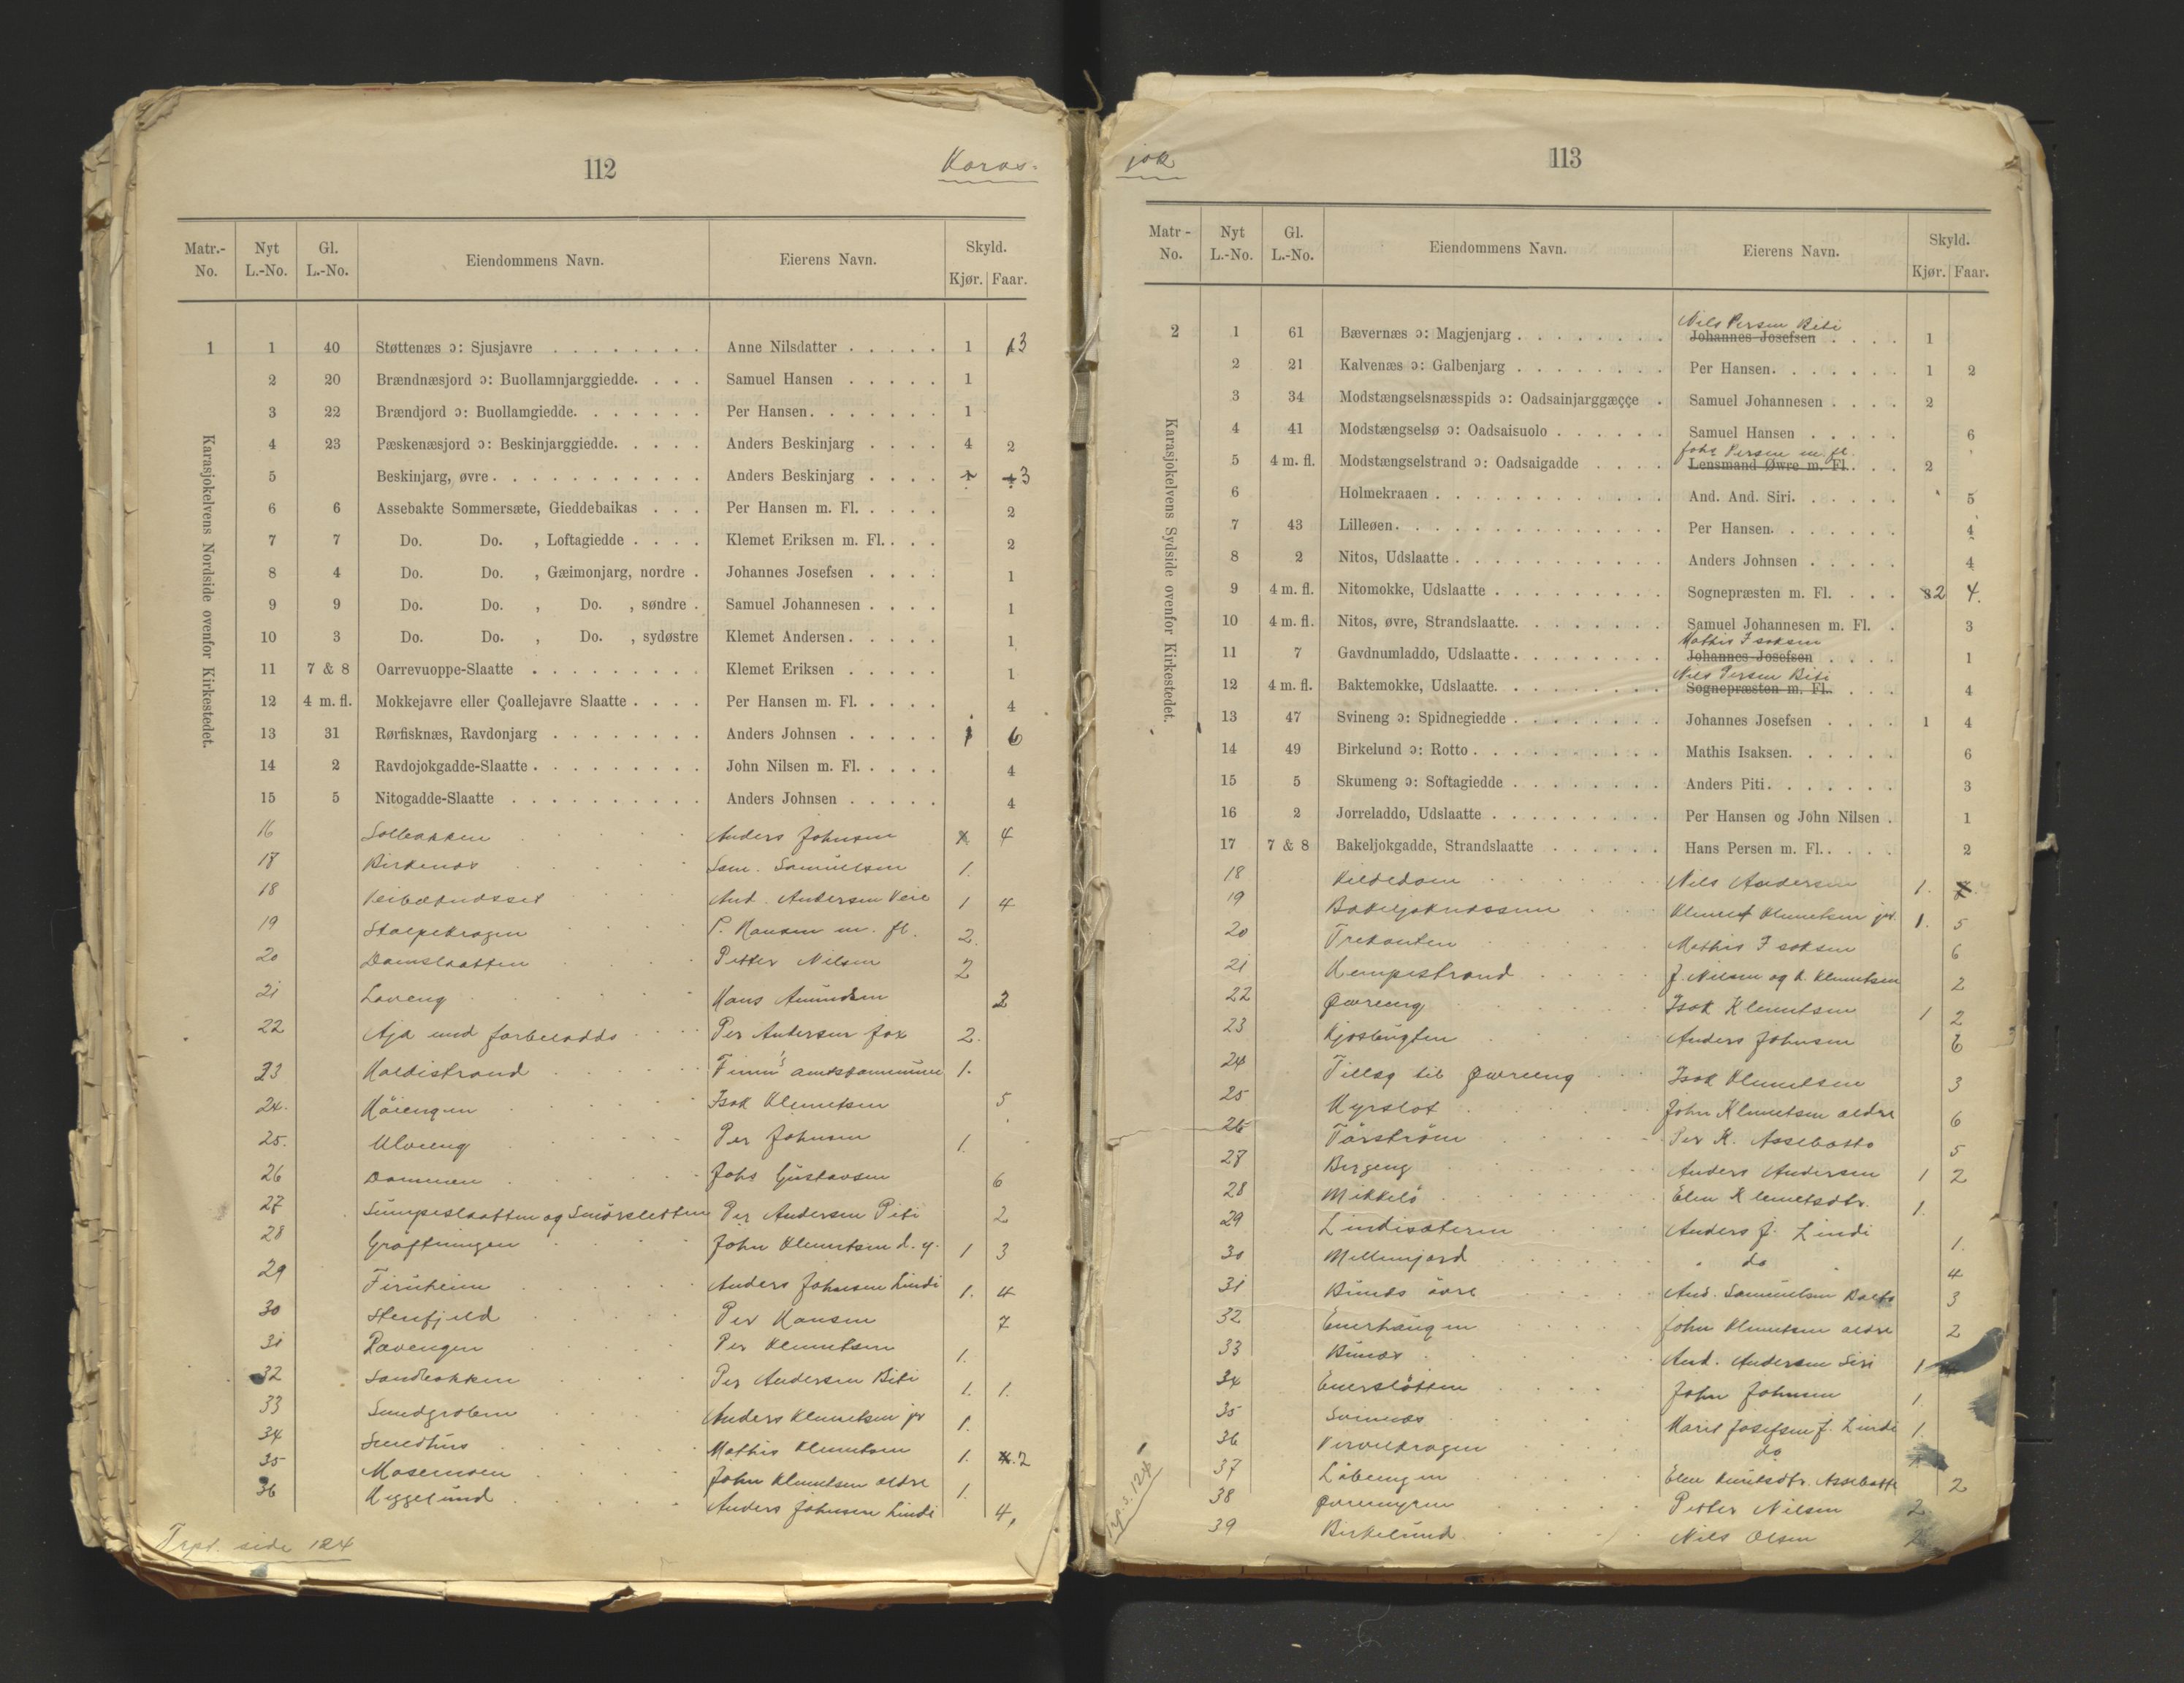 112
Karas-
Matr.- No. | Nyt L.-No. | Gl. L.-No. | Eiendommens Navn. | Eierens Navn. | Skyld. Kjør. | Faar.
Karasjokelvens Nordside ovenfor Kirkestedet.
1 | 1 | 40 | Støttenæs ɔ: Sjusjavre | Anne Nilsdatter | 1 | 3
2 | 20 | Brændnæsjord ɔ: Buollamnjarggiedde. | Samuel Hansen | 1
3 | 22 | Brændjord ɔ: Buollamgiedde. | Per Hansen. | 1
4 | 23 | Pæskenæsjord ɔ: Beskinjarggiedde. | Anders Beskinjarg | 4 | 2
5 | Beskinjarg, øvre. | Anders Beskinjarg | 3
6 | 6 | Assebakte Sommersæte, Gieddebaikas | Per Hansen m. Fl. | 2
7 | 7 | Do. Do. , Loftagiedde | Klemet Eriksen m. Fl. | 2
8 | 4 | Do. Do. , Gæimonjarg, nordre | Johannes Josefsen | 1
9 | 9 | Do. Do. , Do. , søndre | Samuel Johannesen | 1
10 | 3 | Do. Do. , Do. , sydøstre | Klemet Andersen. | 1
11 | 7 & 8 | Oarrevuoppe-Slaatte | Klemet Eriksen | 1
12 | 4 m. fl. | Mokkejavre eller Çoallejavre Slaatte | Per Hansen m. Fl. | 4
13 | 31 | Rørfisknæs, Ravdonjarg | Anders Johnsen | 1 | 6
14 | 2 | Ravdojokgadde-Slaatte | John Nilsen m. Fl. | 4
15 | 5 | Nitogadde-Slaatte | Anders Johnsen | 4
16 | Solbakken | Anders Johnsen | 4
17 | Birkenæs | Sam. Samuelsen | 1.
18 | And. Andersen | 1 | 4
19 | Stolpekrogen | P. Hansen m. fl. | 2.
20 | Damslaatten | Petter Nilsen | 2
21 | Løveng | Hans Amundsen | 2
22 | Aja med | Per Andersen Jox | 2.
23 | Haldistrand | 1.
24. | Isak Klemetsen | 5
25. | Ulveng | Per Johnsen | 1.
26 | Dammen | Johs Gustavsen | 6
27 | Sumpeslaatten og | Per Andersen Piti | 2
28 | Grøftningen | John Klemetsen d. y. | 1 | 3
29 | Furuheim | Anders Johnsen Lindi | 1. | 4
30 | Stenfjeld | Per Hansen | 7
31 | Per Klemetsen | 1.
32 | Sandbakken | Per Andersen Biti | 1. | 1.
33 | Anders Klemetsen jr | 1.
34 | Mathis Klemetsen | 1. | 2
35 | Mosemoen | John Klemetsen ældre | 1.
36 | Heggelund | Anders Johnsen Lindi | 4,
Trpt. side 124
jok
113
Matr- No. | Nyt L.-No. | Gl. L.-No. | Eiendommens Navn. | Eierens Navn. | Skyld. Kjør. | Faar.
Karasjokelvens Sydside ovenfor Kirkestedet.
Nils Persen Biti
2 | 1 | 61 | Bævernæs ɔ: Magjenjarg | Johannes Josefsen | 1
2 | 21 | Kalvenæs ɔ: Galbenjarg | Per Hansen. | 1 | 2
3 | 34 | Modstængselsnæsspids ɔ: Oadsainjarggæççe | Samuel Johannesen | 2
4 | 41 | Modstængselsø ɔ: Oadsaisuolo | Samuel Hansen | 6
Johs Persen m. fl.
5 | 4 m. fl. | Modstængselstrand ɔ: Oadsaigadde | Lensmand Øwre m. Fl. | 2
6 | Holmekraaen | And. And. Siri. | 5
7 | 43 | Lilleøen. | Per Hansen. | 4
8 | 2 | Nitos, Udslaatte | Anders Johnsen | 4
9 | 4 m. fl. | Nitomokke, Udslaatte | Sognepræsten m. Fl. | 2 | 4.
10 | 4 m. fl. | Nitos, øvre, Strandslaatte. | Samuel Johannesen m. Fl. | 3
Mathis Isaksen
11 | 7 | Gavdnumladdo, Udslaatte | Johannes Josefsen | 1
Nils Persen Biti
12 | 4 m. fl. | Baktemokke, Udslaatte. | Sognepræsten m. Fl. | 4
13 | 47 | Svineng ɔ: Spidnegiedde | Johannes Josefsen | 1 | 4
14 | 49 | Birkelund ɔ: Rotto | Mathis Isaksen. | 6
15 | 5 | Skumeng ɔ: Softagiedde | Anders Piti. | 3
16 | 2 | Jorreladdo, Udslaatte | Per Hansen og John Nilsen | 1
17 | 7 & 8 | Bakeljokgadde, Strandslaatte | Hans Persen m. Fl. | 2
18 | Kildedam | Nils Andersen | 1.
19 | Klemet Klemetsen jr. | 1. | 5
20 | Trekanten | Mathis Isaksen | 6
21 | Kempestrand | J. Nilsen og K. Klemetsen | 2
22 | Øvreeng | Isak Klemetsen | 1 | 2
23 | Kjosbugten | Anders Johnsen | 6
24 | Tillæg til Øvreeng | Isak Klemetsen | 3
25 | Myrslot | John Klemetsen ældre | 6
26 | Tårström | Per K. Assebakto | 5
27 | Bergeng | Anders Andersen | 1 | 2
28 | Mikkelö | Elen Klemetsdtr. | 1.
29 | Lindisæteren | Anders J. Lindi | 1.
30 | Mellemjord | do | 4
31 | Bunæs övre | And. Samuelsen Balto | 3
32 | Enerhaugen | John Klemetsen ældre | 2
33 | Bunæs | And. Andersen Siri | 1
34 | Enerslåtten | John Johnsen | 1.
35 | Svinnæs | Marit Josefsen J. Lindi | 1.
36 | Vervelkrogen | do
37 | Löbeengen | Elen Assebakte | 2
38 | Øvremyren | Petter Nilsen | 2
39 | Birkelund | Nils Olsen
Trp. s. 124